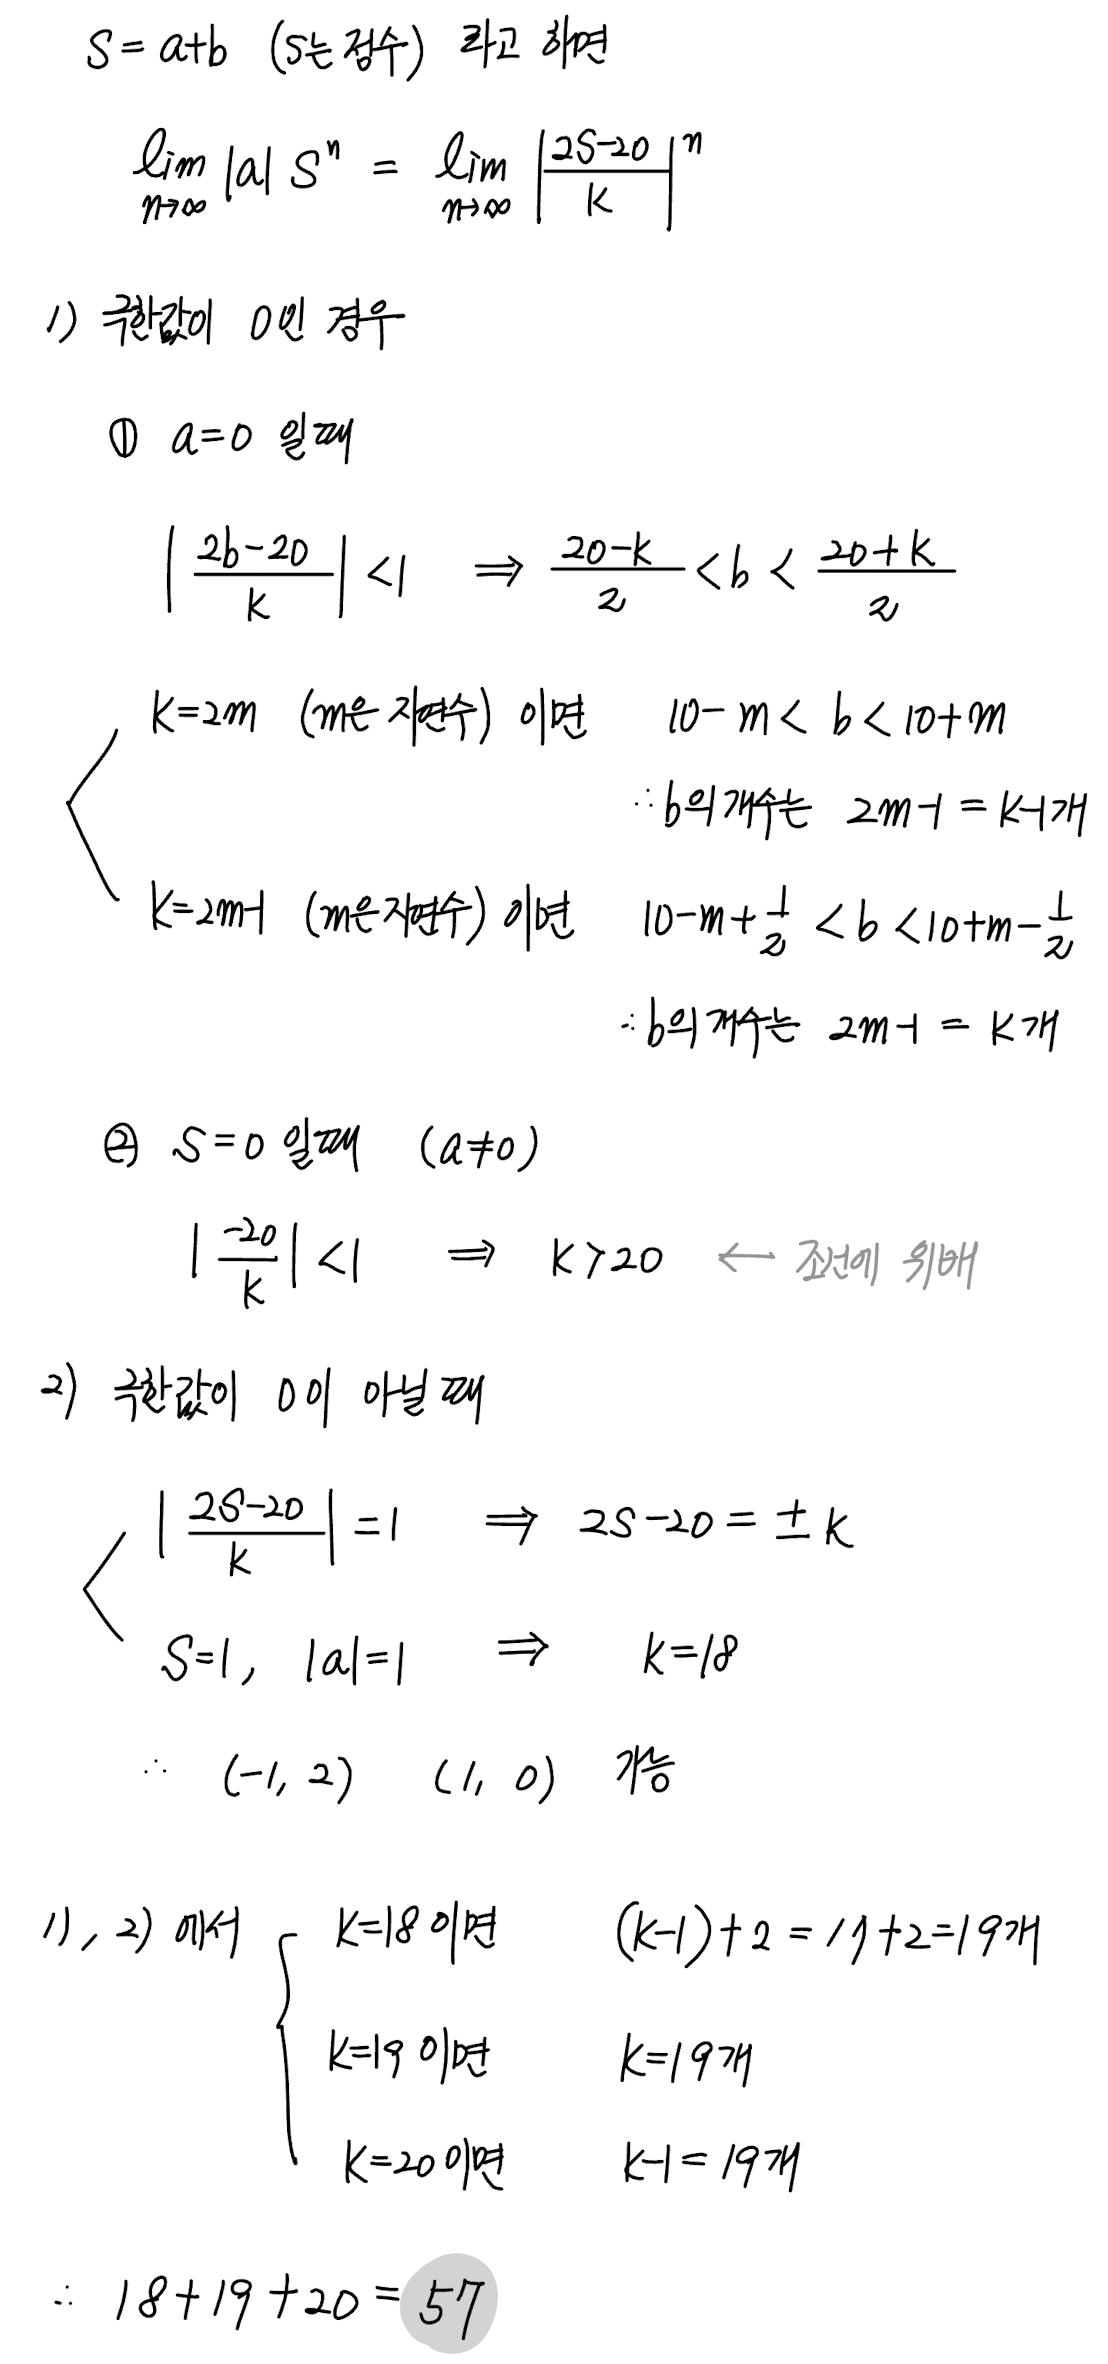 S = a+b (S는 정수) 라고 하면
lim n→∞ |a| S^n = lim n→∞ |(2S-20)/k|^n
1) 극한값이 0인 경우
① a=0 일때
|(2b-20)/k| <1 ⇒ (20-k)/2 < b < (20+k)/2
k=2m (m은 자연수) 이면 10-m < b < 10+m
∴ b의 개수는 2m-1 = k-1개
k=2m-1 (m은 자연수) 이면 10-m+1/2 < b < 10+m-1/2
∴ b의 개수는 2m-1 = k개
② S=0 일때 (a≠0)
|-20/k| <1 ⇒ k>20 ← 조건에 위배
2) 극한값이 0이 아닐 때
|(2S-20)/k| =1 ⇒ 2S-20 = ±k
S=1, |a|=1 ⇒ k=18
∴ (-1, 2) (1, 0) 가능
1), 2) 에서 k=18 이면 (k-1)+2 = 17+2=19개
k=19 이면 k=19개
k=20 이면 k-1 = 19개
∴ 18+19+20 = 57